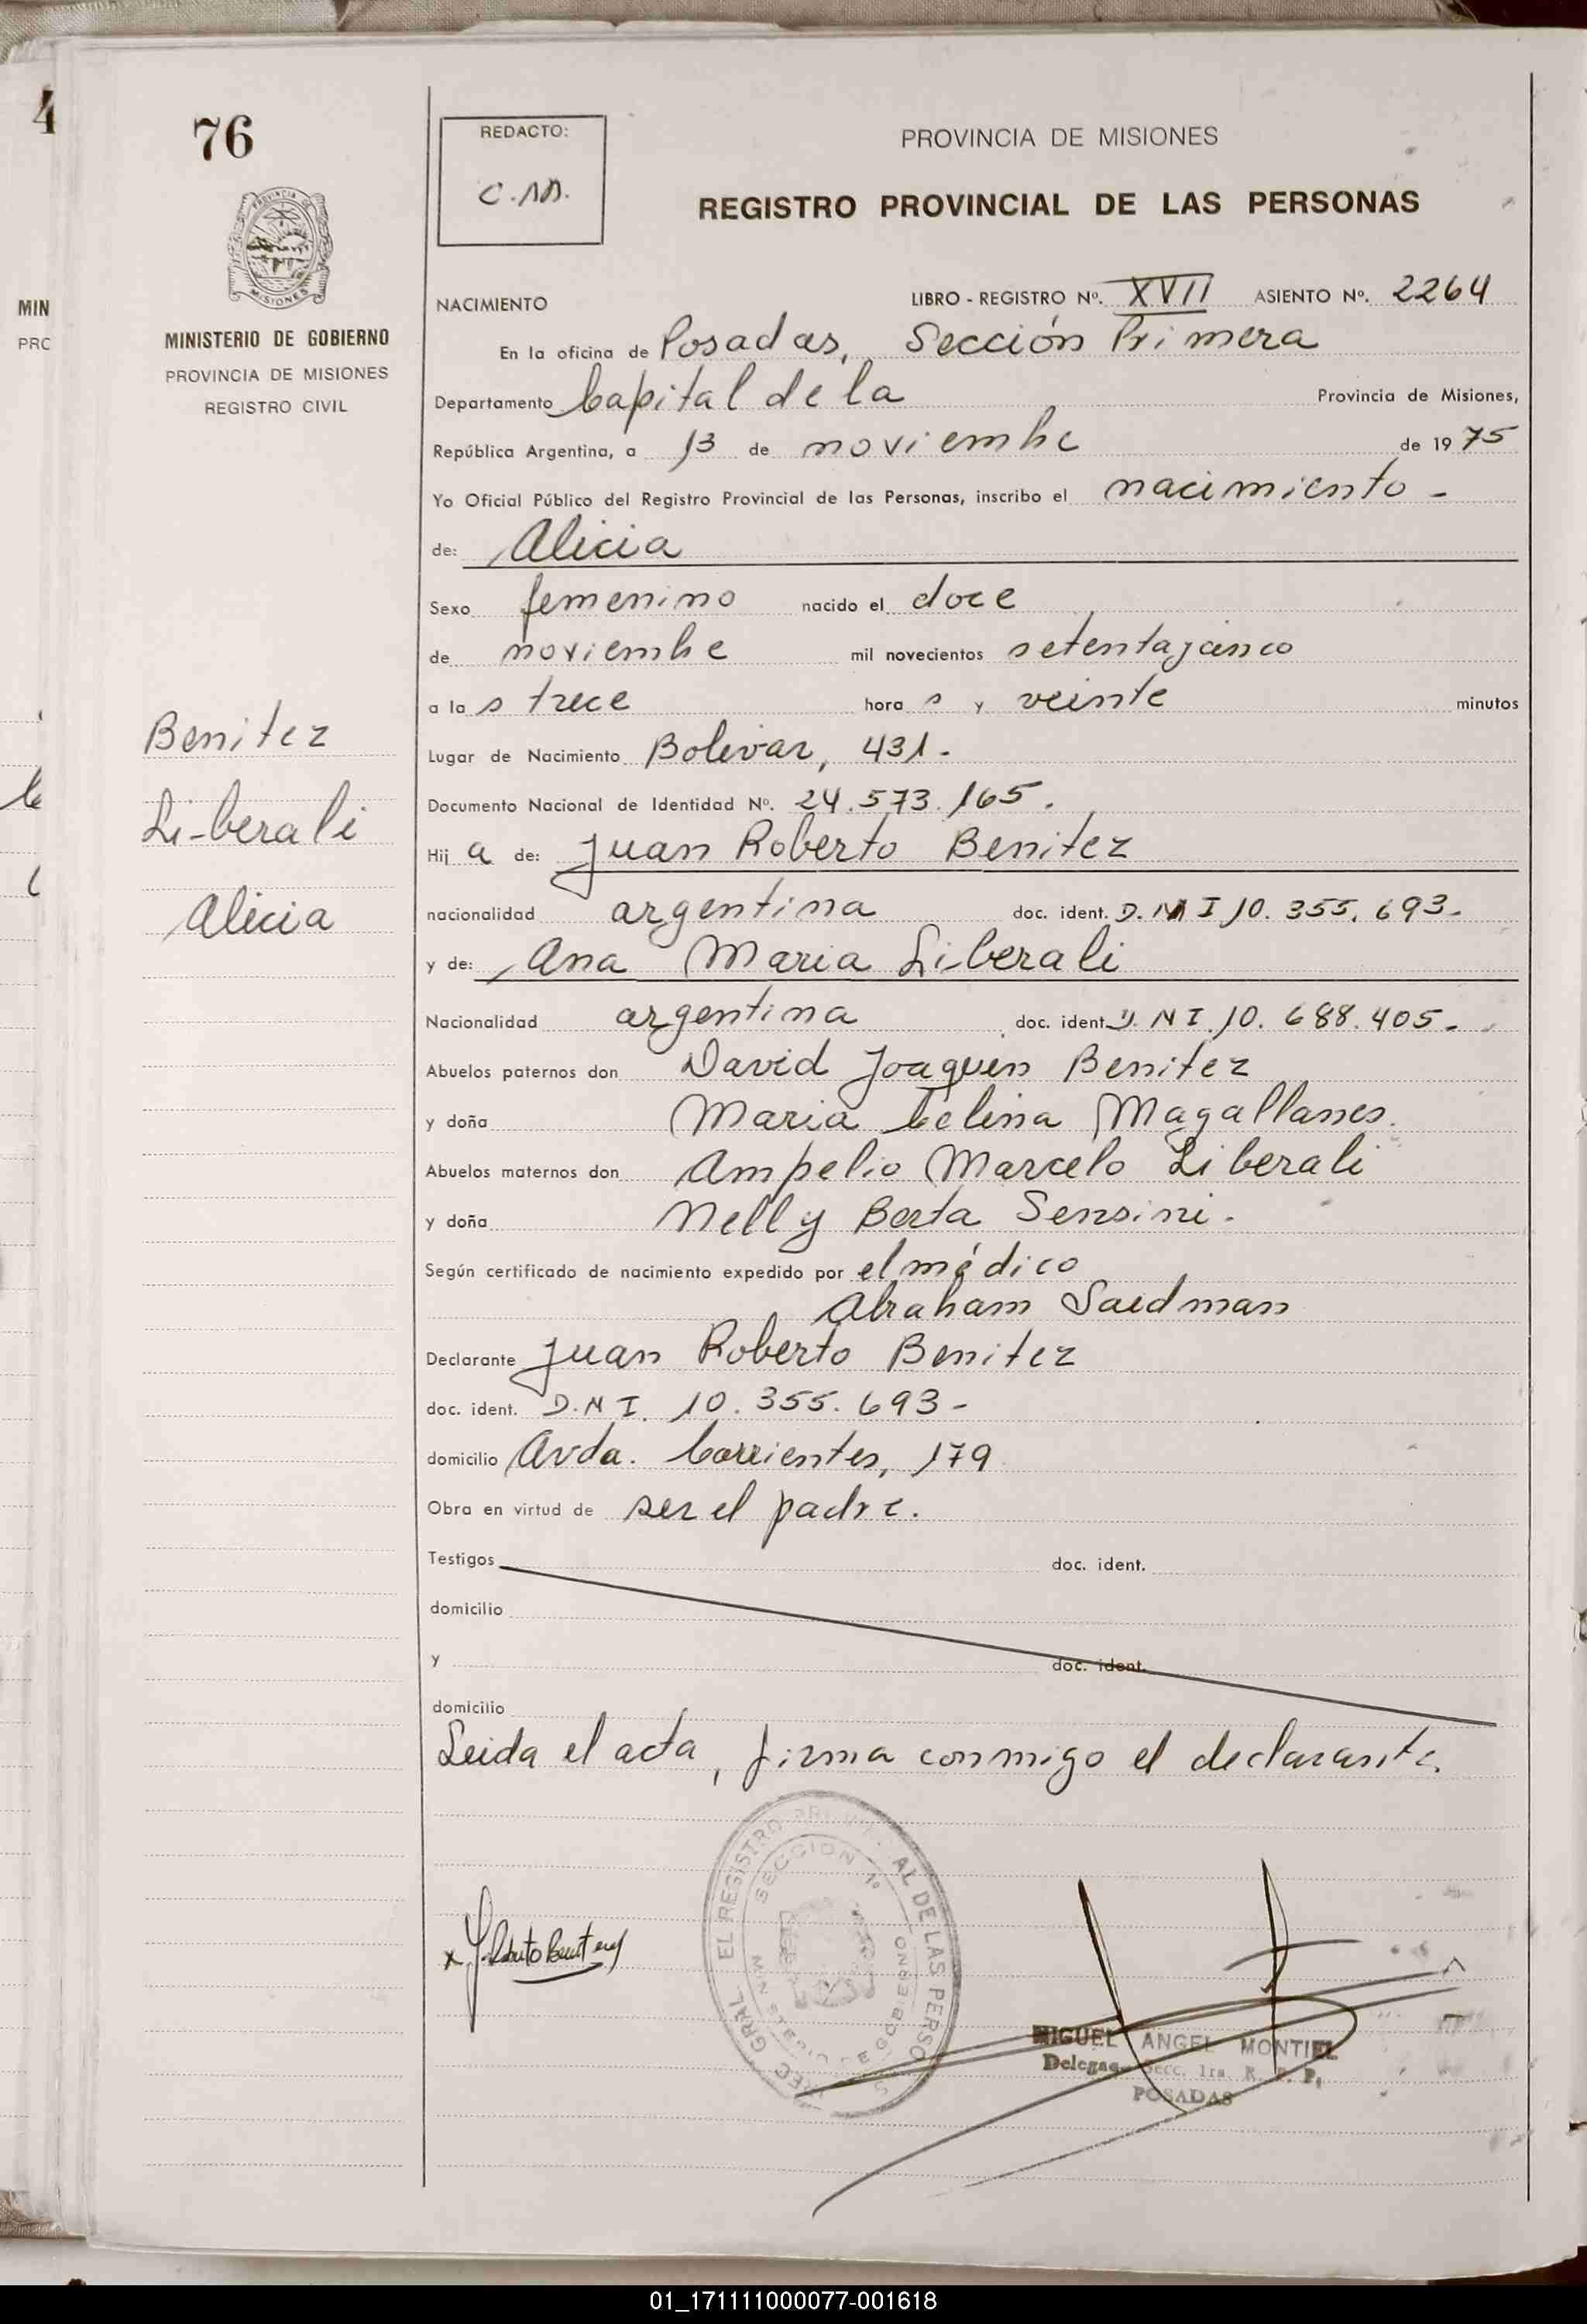 4
76
REDACTO:
C.M.
PROVINCIA DE MISIONES
REGISTRO PROVINCIAL DE LAS PERSONAS
MISIONES
MIN
PRC
MINISTERIO DE GOBIERNO
PROVINCIA DE MISIONES
REGISTRO CIVIL
NACIMIENTO LIBRO - REGISTRO Nº. XVII ASIENTO Nº. 2264
En la oficina de Posadas, Sección Primera
Departamento Capital de la Provincia de Misiones,
República Argentina, a 13 de noviembre de 1975
Yo Oficial Público del Registro Provincial de las Personas, inscribo el nacimiento -
de: Alicia
Sexo femenino nacido el doce
de noviembre mil novecientos setentaycinco
a la s trece hora s y veinte minutos
Benitez
Liberali
Alicia
Lugar de Nacimiento Bolivar, 431.
Documento Nacional de Identidad Nº. 24.573.165.
Hij a de: Juan Roberto Benitez
nacionalidad argentina doc. ident. D.N I 10. 355. 693-
y de: Ana Maria Liberali
Nacionalidad argentina doc. ident. D. N I. 10. 688. 405-
Abuelos paternos don David Joaquin Benitez
y doña Maria Celina Magallanes.
Abuelos maternos don Ampelio Marcelo Liberali
y doña Nelly Berta Sensini.
Según certificado de nacimiento expedido por el médico
Abraham Saidman
Declarante Juan Roberto Benitez
doc. ident. D.N I. 10. 355. 693-
domicilio Avda. Corrientes, 179
Obra en virtud de ser el padre.
Testigos doc. ident.
domicilio
y doc. ident.
domicilio
Leida el acta, firma conmigo el declarante.
SECCION 1º
MIGUEL ANGEL MONTIEL
Secc. 1ra. R. P. P.
POSADAS
01_171111000077-001618